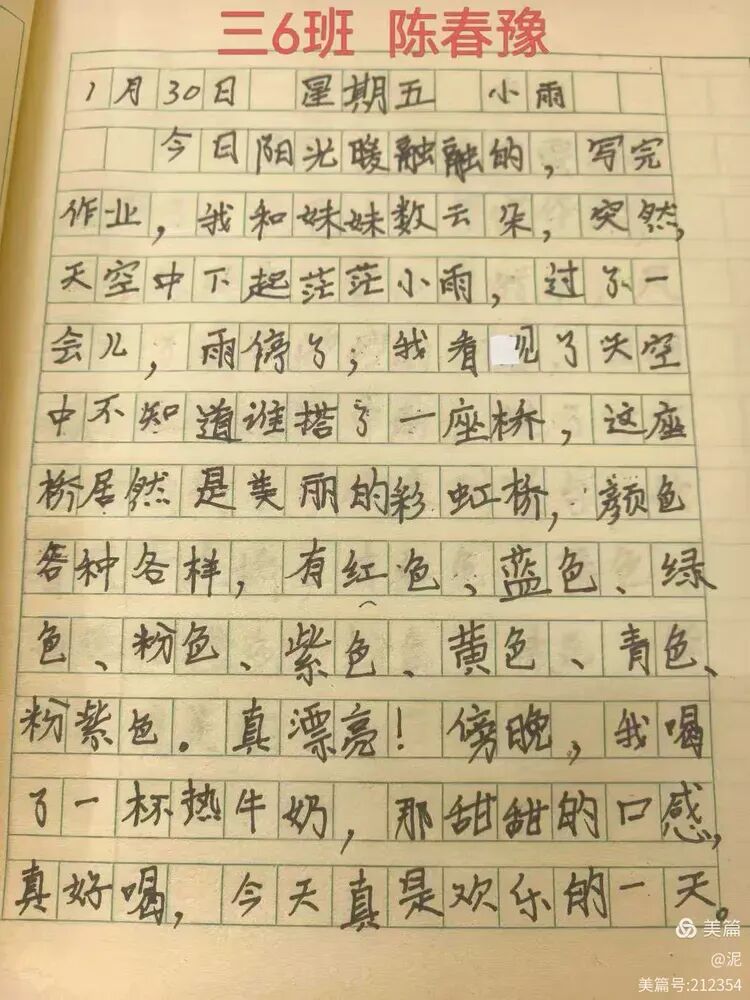 三6班 陈春豫
1月30日 星期五 小雨
今日阳光暖融融的，写完
作业，我和妹妹数云朵，突然，
天空中下起茫茫小雨，过了一
会儿，雨停了，我看见了天空
中不知道谁搭了一座桥，这座
桥居然是美丽的彩虹桥，颜色
各种各样，有红色、蓝色、绿
色、粉色、紫色、黄色、青色、
粉紫色。真漂亮！傍晚，我喝
了一杯热牛奶，那甜甜的口感，
真好喝，今天真是欢乐的一天。
美篇
@泥
美篇号:212354